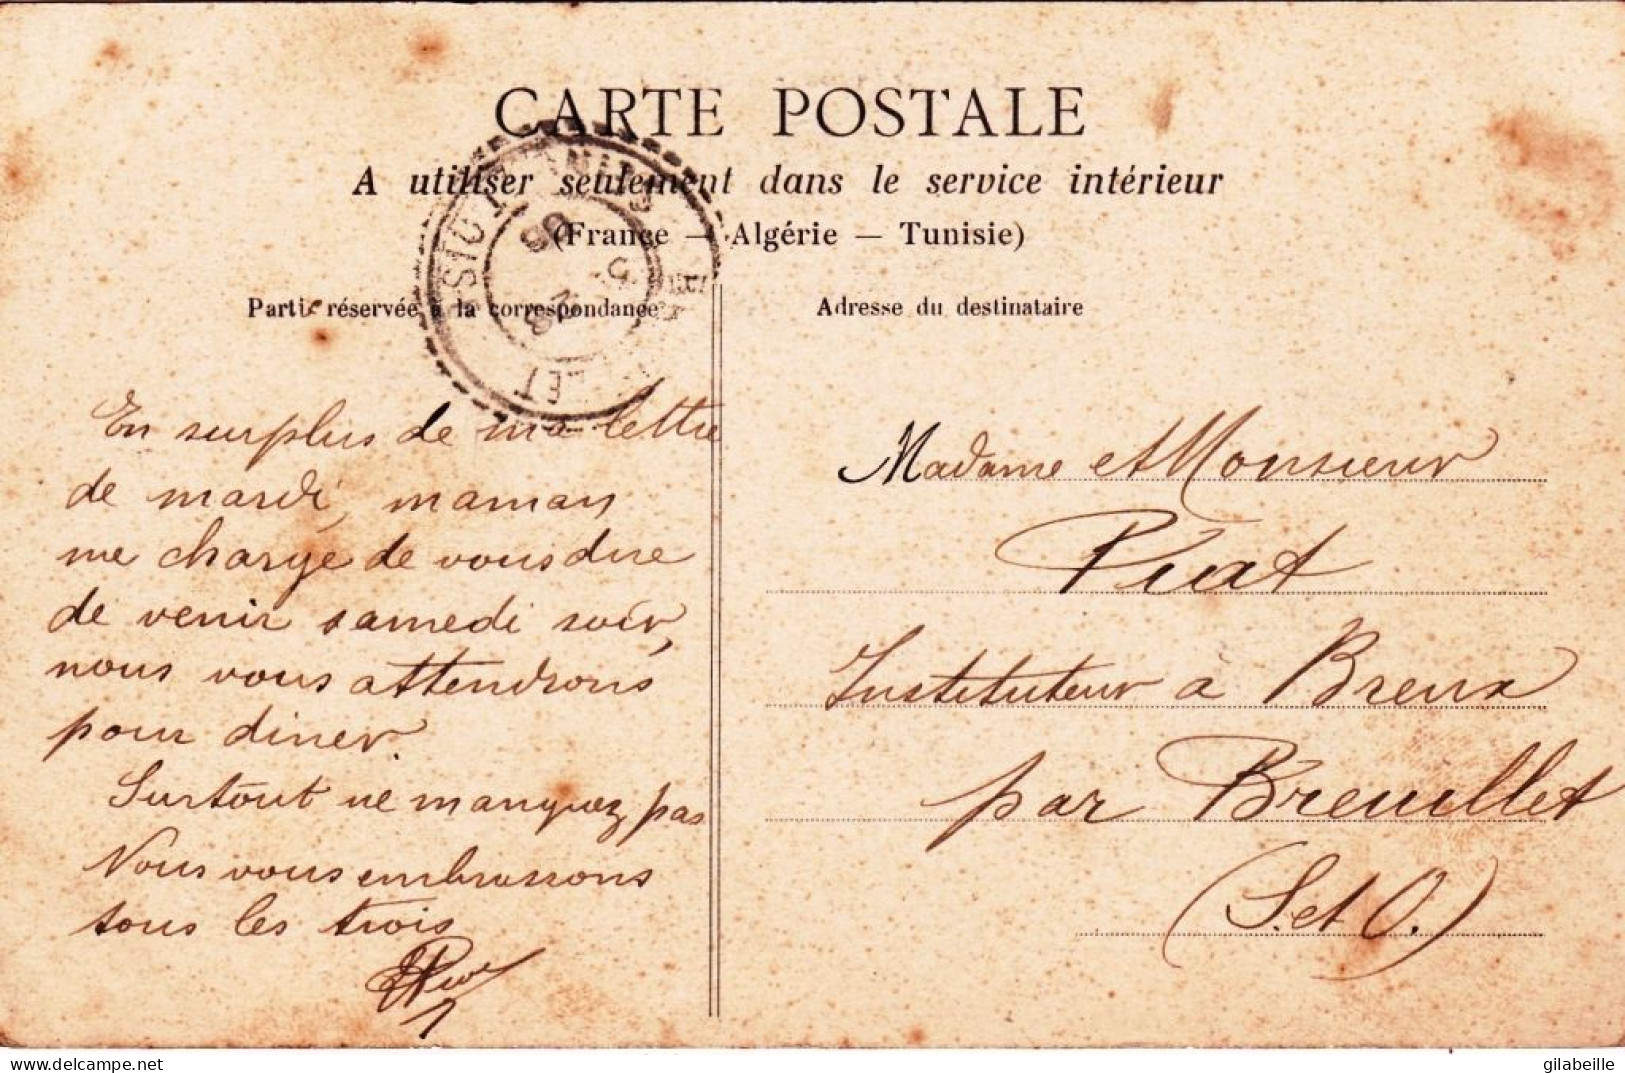 CARTE POSTALE
A utiliser seulement dans le service intérieur
(France — Algérie — Tunisie)
Partie réservée à la correspondance
Adresse du destinataire
En surplus de ma lettre
de mardi, maman
me charge de vous dire
de venir samedi soir,
nous vous attendrons
pour diner.
Surtout ne manquez pas
Nous vous embrassons
tous les trois
Madame et Monsieur
Piat
Instituteur à Breux
par Breuillet
(S. et O.)
delcampe.net
gilabeille